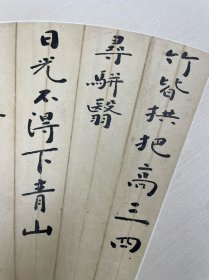 竹皆拱把高三四
尋駢翳
日光不得下青山